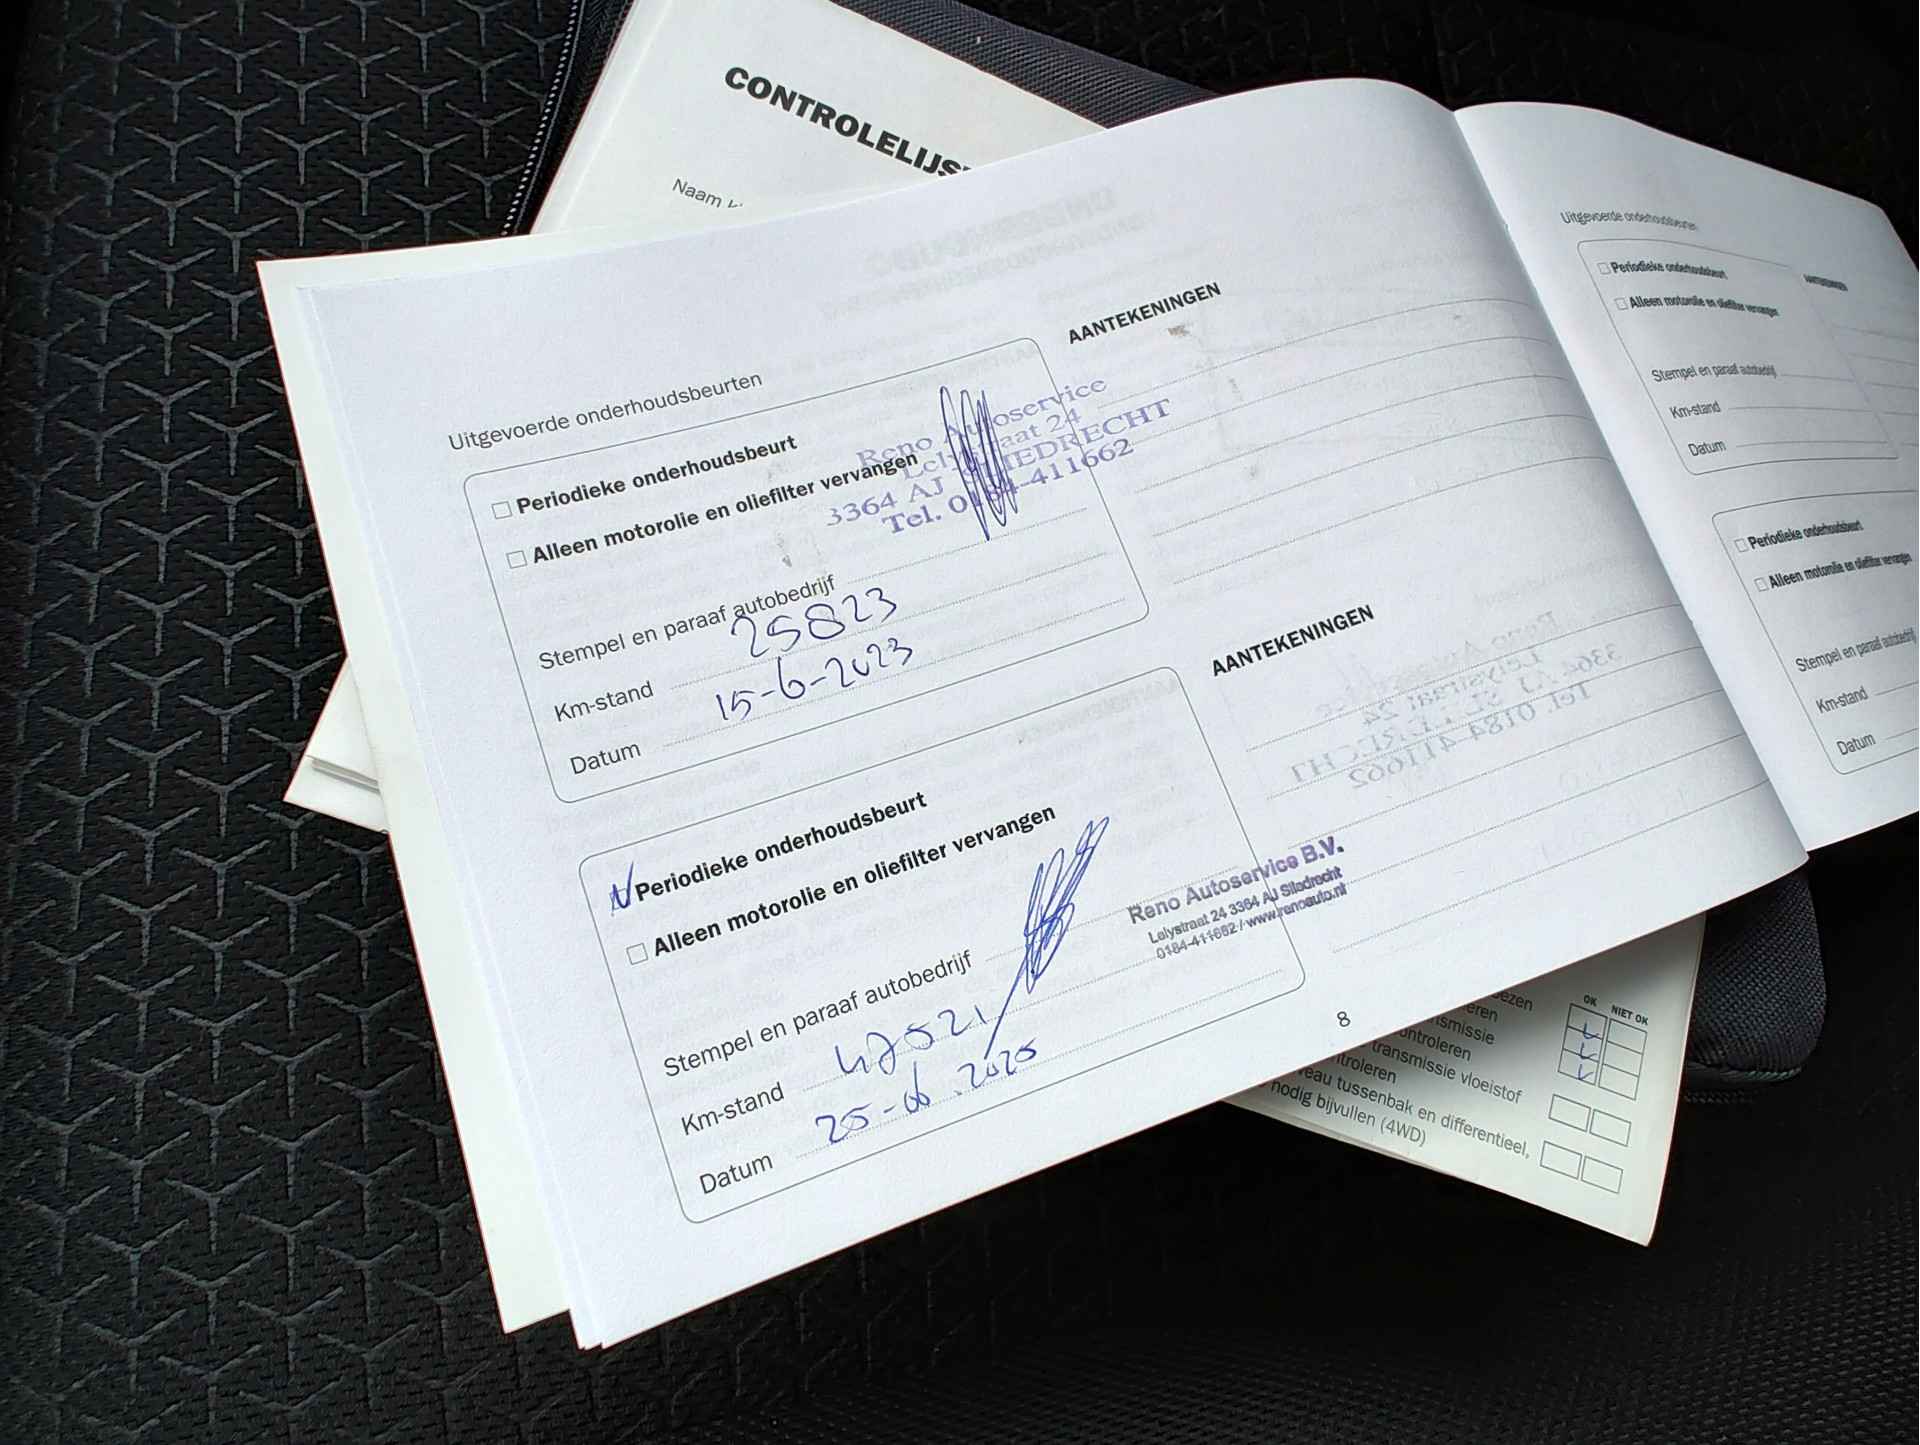 CONTROLELIJS
Naam
Uitgevoerde onderhoudsbeurten
Periodieke onderhoudsbeurt
Alleen motorolie en oliefilter vervangen
Reno Autoservice
3364 AJ SLIEDRECHT
Tel. 0184-411662
Stempel en paraaf autobedrijf
Km-stand 25823
Datum 15-6-2023
AANTEKENINGEN
Periodieke onderhoudsbeurt
Alleen motorolie en oliefilter vervangen
Stempel en paraaf autobedrijf
Reno Autoservice B.V.
Lelystraat 24 3364 AJ Sliedrecht
0184-411662 / www.renoauto.nl
Km-stand
Datum 25-06.2025
AANTEKENINGEN
8
Uitgevoerde onderhoudsbeurten
Periodieke onderhoudsbeurt
Alleen motorolie en oliefilter vervangen
Stempel en paraaf autobedrijf
Km-stand
Datum
AANTEKENINGEN
Periodieke onderhoudsbeurt
Alleen motorolie en oliefilter vervangen
Stempel en paraaf autobedrijf
Km-stand
Datum
OK NIET OK
ezen
eren
smissie
ontroleren
transmissie vloeistof
ntroleren
eau tussenbak en differentieel,
nodig bijvullen (4WD)